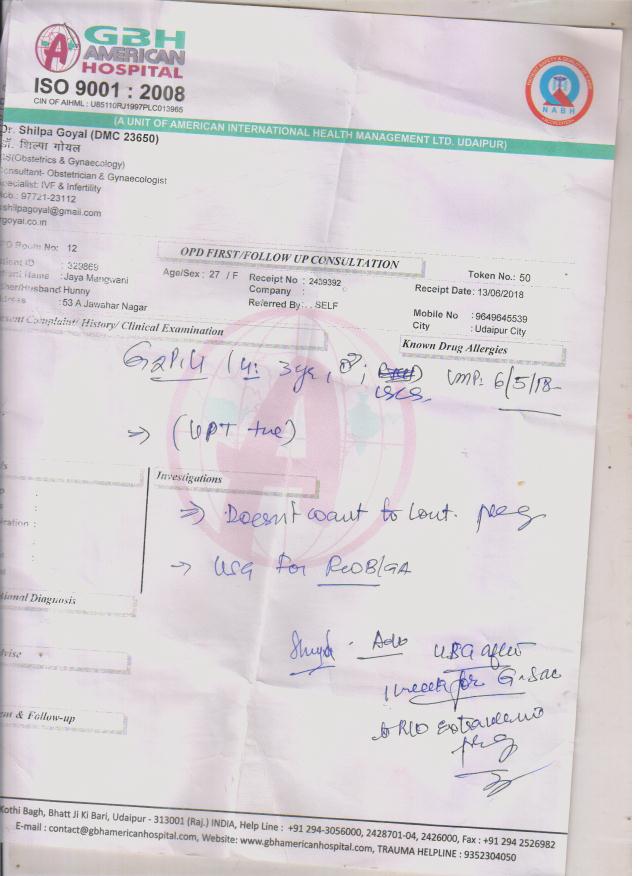 GBH
AMERICAN
HOSPITAL
ISO 9001 : 2008
CIN OF AIHML : U85110RJ1997PLC013965
NABH
(A UNIT OF AMERICAN INTERNATIONAL HEALTH MANAGEMENT LTD. UDAIPUR)
Dr. Shilpa Goyal (DMC 23650)
डॉ. शिल्पा गोयल
(Obstetrics & Gynaecology)
Consultant- Obstetrician & Gynaecologist
Specialist: IVF & Infertility
Mob.: 97721-23112
shilpagoyal@gmail.com
goyal.co.in
Room No: 12
OPD FIRST/FOLLOW UP CONSULTATION
Token No.: 50
ID : 329869
Name : Jaya Mangwani
Age/Sex : 27 / F
Receipt No : 2439392
Receipt Date: 13/06/2018
/Husband Hunny
Company :
53 A Jawahar Nagar
Referred By: . . SELF
Mobile No : 9649645539
City : Udaipur City
Complaint/ History/ Clinical Examination
Known Drug Allergies
G2P1L1 3yr, ♂; LSCS, LMP: 6/5/18
⇒ (UPT +ve)
Investigations
⇒ Doesn't want to cont. preg
→ USG for POB/GA
Adv USG after
1 week for G-Sac
R/O preg
Diagnosis
& Follow-up
Kothi Bagh, Bhatt Ji Ki Bari, Udaipur - 313001 (Raj.) INDIA, Help Line : +91 294-3056000, 2428701-04, 2426000, Fax : +91 294 2526982
E-mail : contact@gbhamericanhospital.com, Website: www.gbhamericanhospital.com, TRAUMA HELPLINE : 9352304050